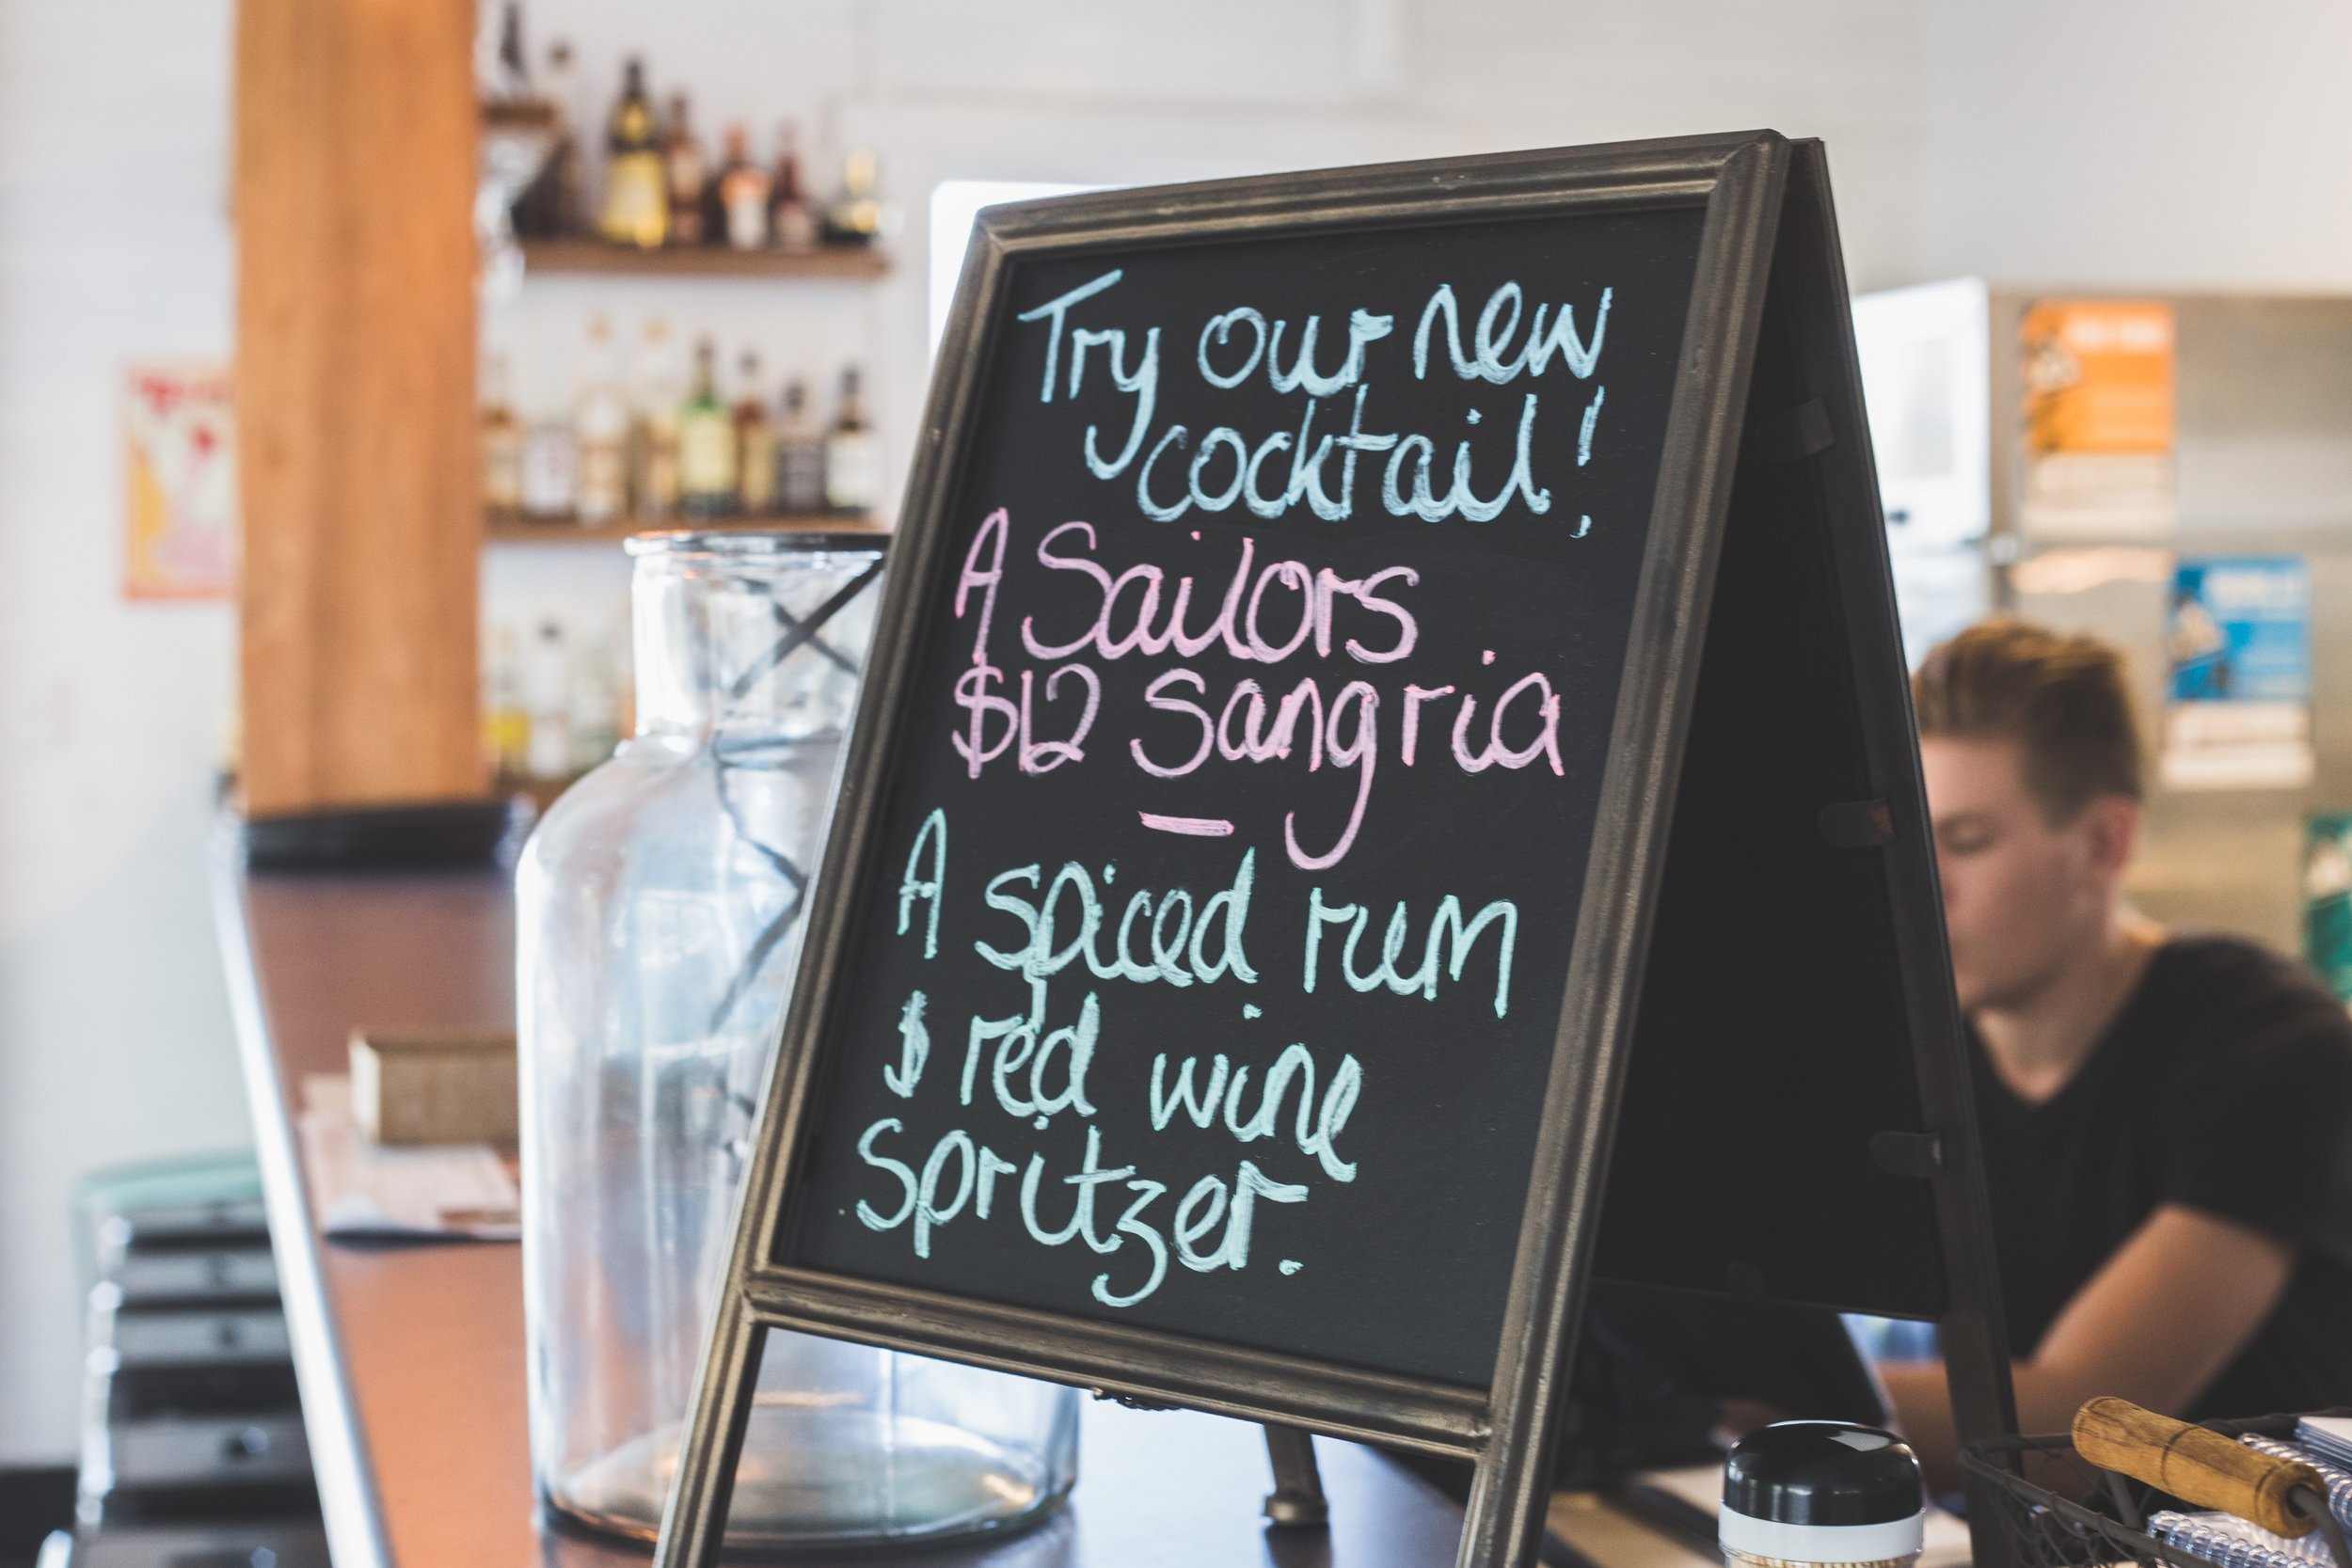 Try our new
cocktail!
A Sailors
$12 Sangria
—
A spiced rum
$ red wine
Spritzer.